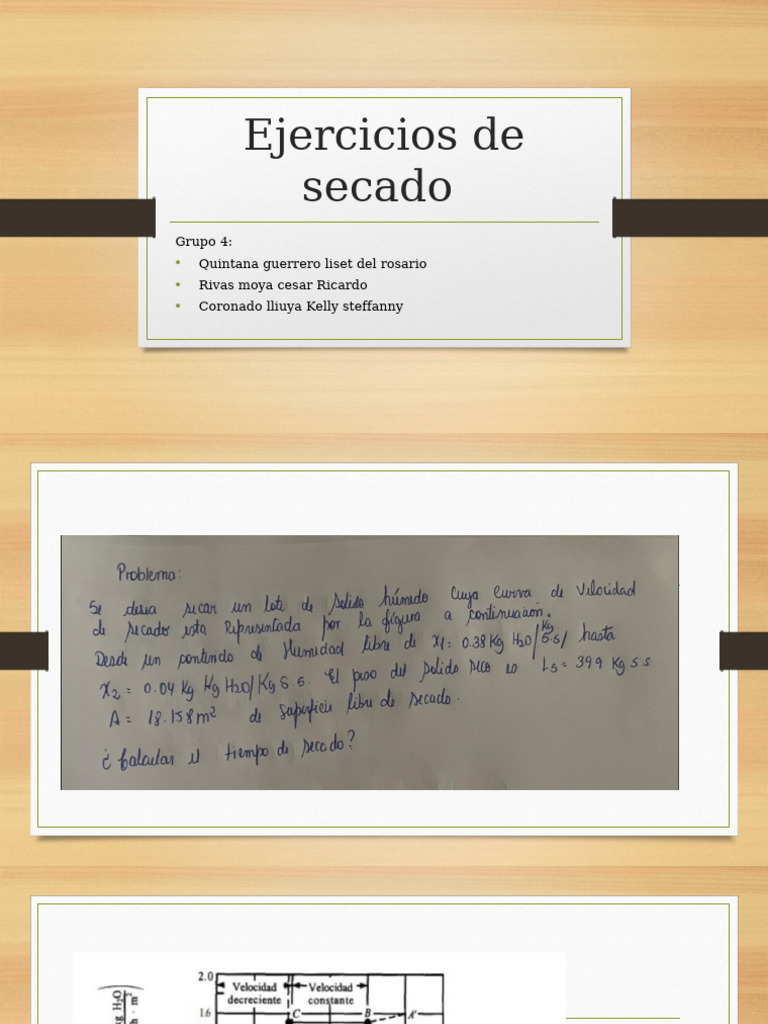 Ejercicios de
secado
Grupo 4:
• Quintana guerrero liset del rosario
• Rivas moya cesar Ricardo
• Coronado lliuya Kelly steffanny
Problema:
Se desea secar un lote de solido húmedo cuya curva de velocidad
de secador esta Representada por la figura a continuación.
Desde un contenido de Humedad libre de X1: 0.38 Kg H2O/Kg s.s/ hasta
X2 = 0.04 Kg Kg H2O/Kg s.s. El peso del solido seco es Ls = 399 Kg s s
A = 18.158 m² de superficie libre de secado.
¿Calcular el tiempo de secado?
2.0
Velocidad Velocidad
decreciente constante
1.6 C B A'
g H2O
h · m²